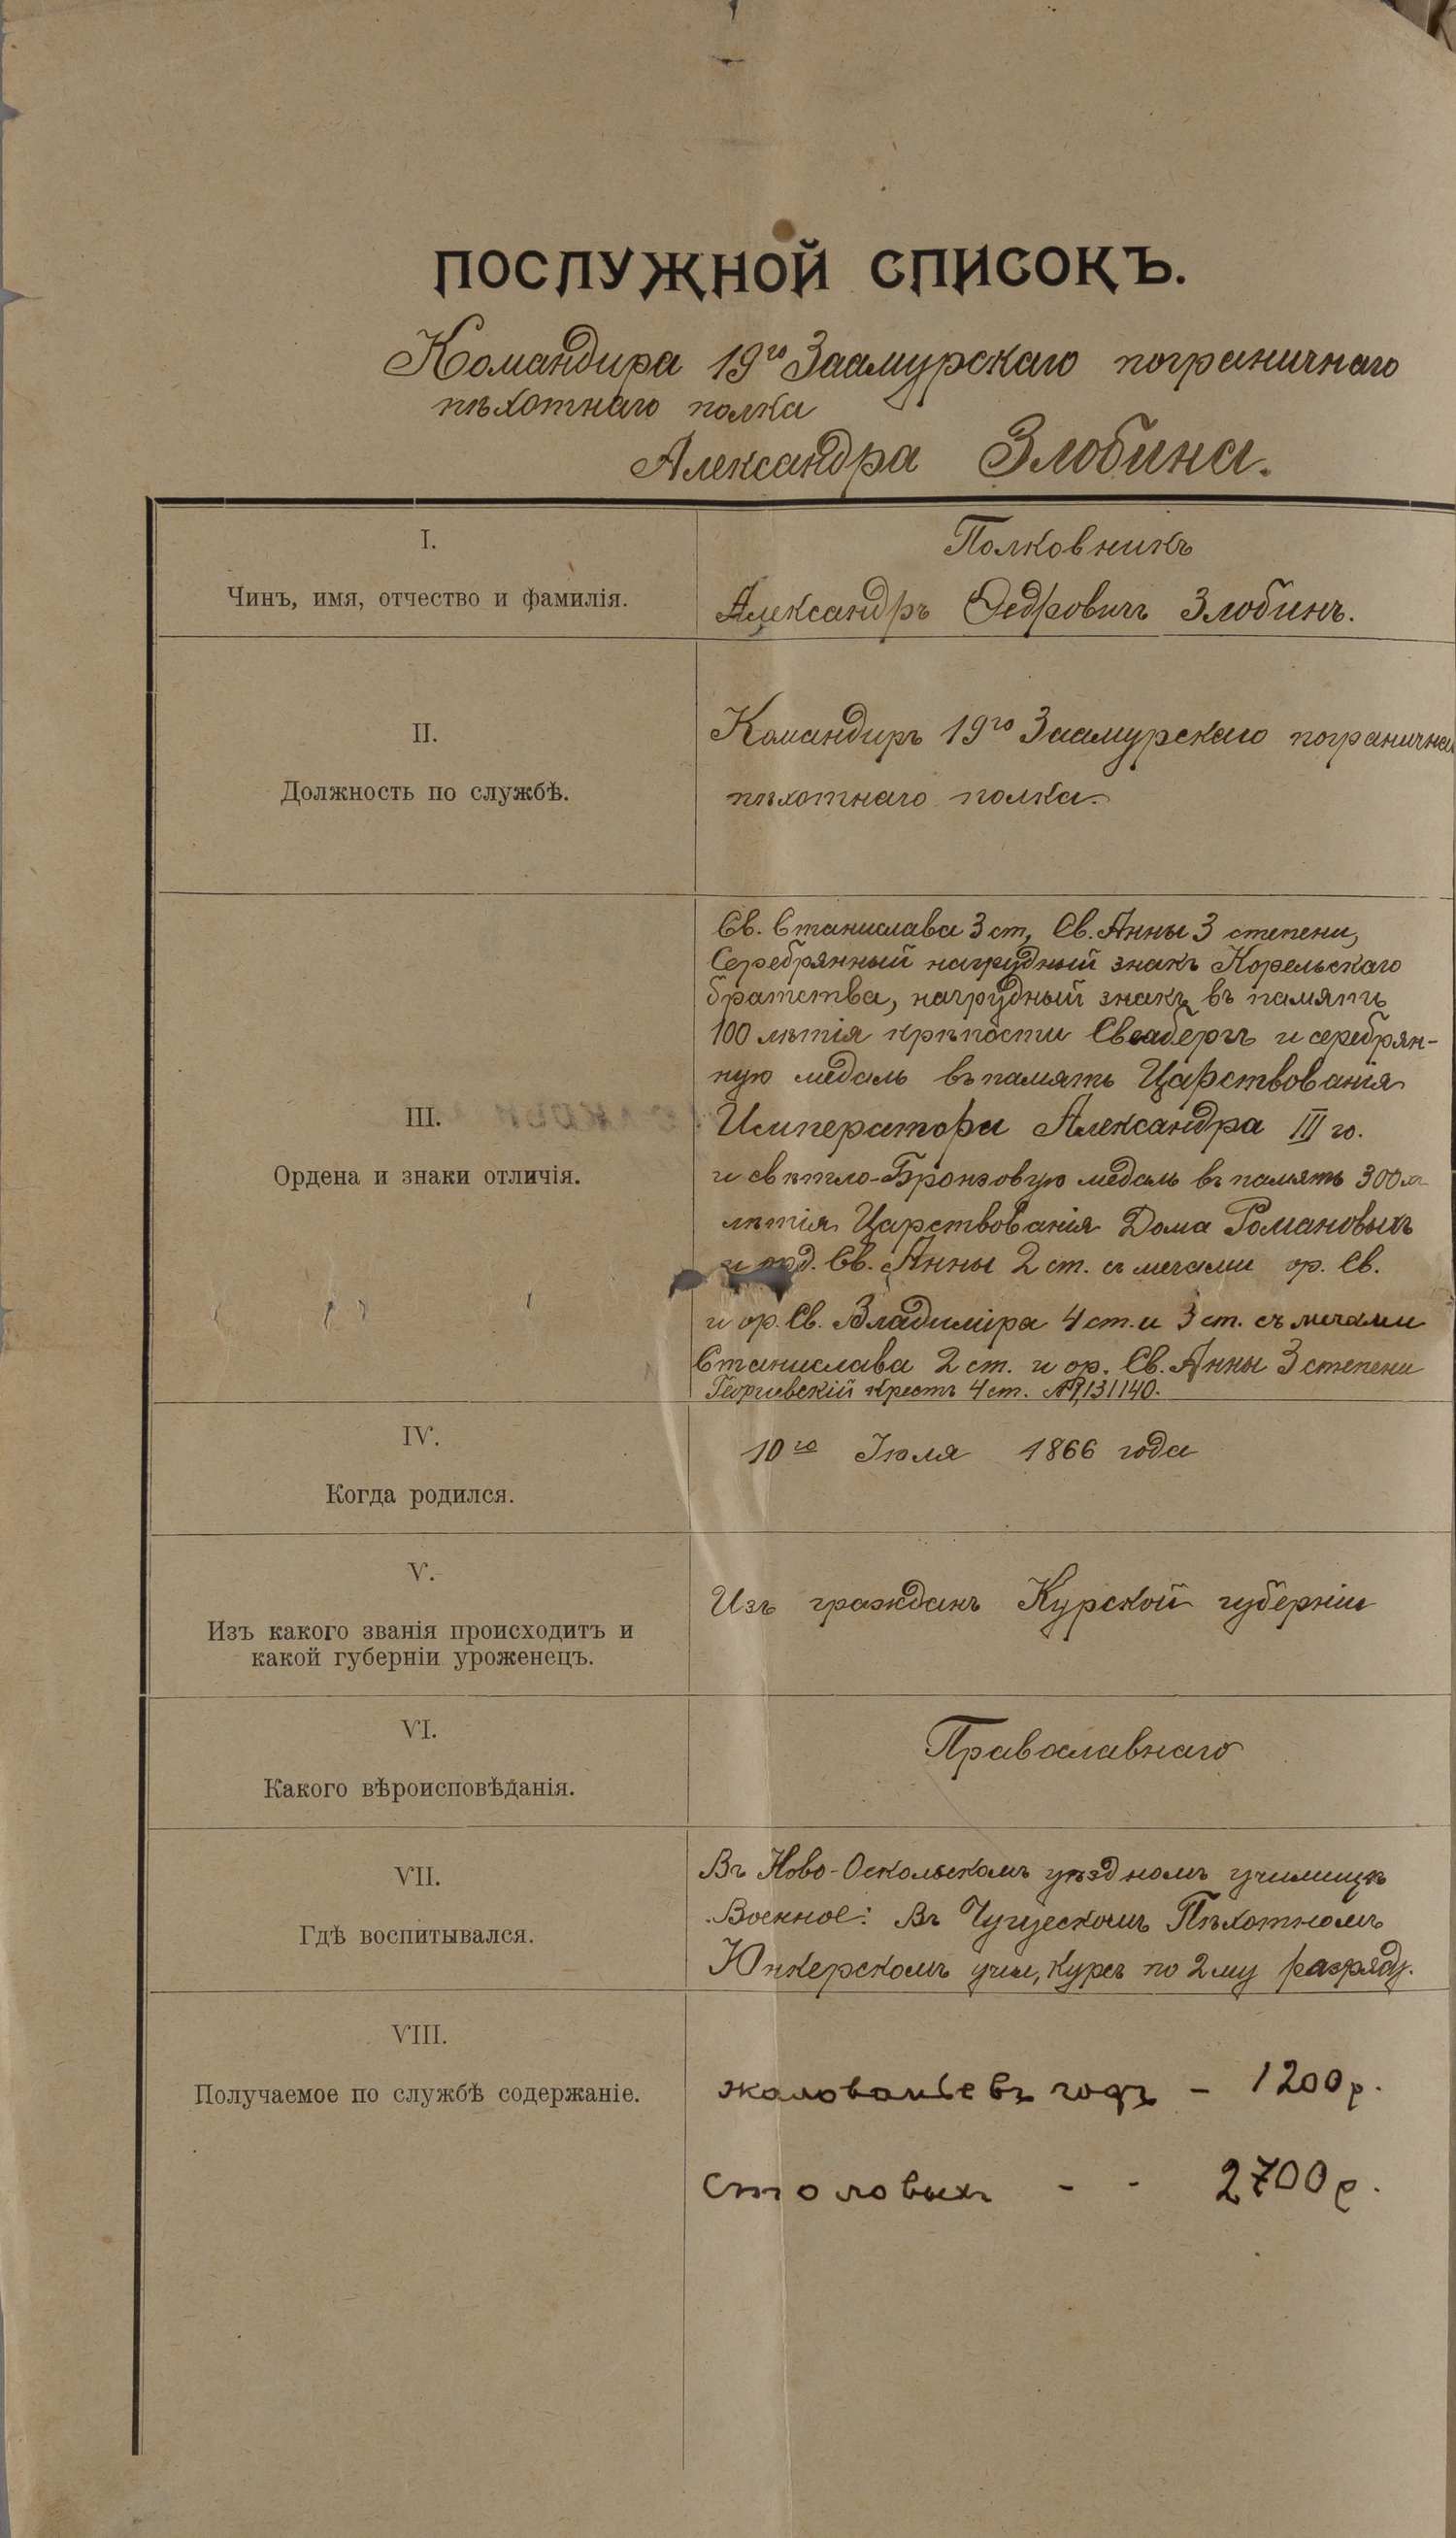 ПОСЛУЖНОЙ СПИСОКЪ.
Командира 19го Заамурскаго пограничнаго
пѣхотнаго полка
Александра Злобина.
I.
Чинъ, имя, отчество и фамилія.
Полковникъ
Александръ Федровичъ Злобинъ.
II.
Должность по службѣ.
Командиръ 19го Заамурскаго погранична
пѣхотнаго полка.
III.
Ордена и знаки отличія.
Св. Станислава 3 ст, Св. Анны 3 степени,
Серебрянный нагрудный знакъ Корельскаго
братства, нагрудный знакъ въ память
100 лѣтія крѣпости Свеаборгъ и серебрян-
ную медаль въ память Царствованія
Императора Александра III го.
и свѣтло-Бронзовую медаль въ память 300
лѣтія Царствованія Дома Романовыхъ
и орд. Св. Анны 2 ст. съ мечами ор. Св.
и ор. Св. Владиміра 4 ст. и 3 ст. съ мечами
Станислава 2 ст. и ор. Св. Анны 3 степени
Георгіевскій крестъ 4 ст. № 1,131140.
IV.
Когда родился.
10го Іюля 1866 года
V.
Изъ какого званія происходитъ и
какой губерніи уроженецъ.
Изъ гражданъ Курской губерніи
VI.
Какого вѣроисповѣданія.
Православнаго
VII.
Гдѣ воспитывался.
Въ Ново-Оскольскомъ уѣздномъ училищѣ
Военное: Въ Чугуескомъ Пѣхотномъ
Юнкерскомъ учил, курсъ по 2му разряду.
VIII.
Получаемое по службѣ содержаніе.
жалованье въ годъ - 1200 р.
столовыхъ - - 2700 р.